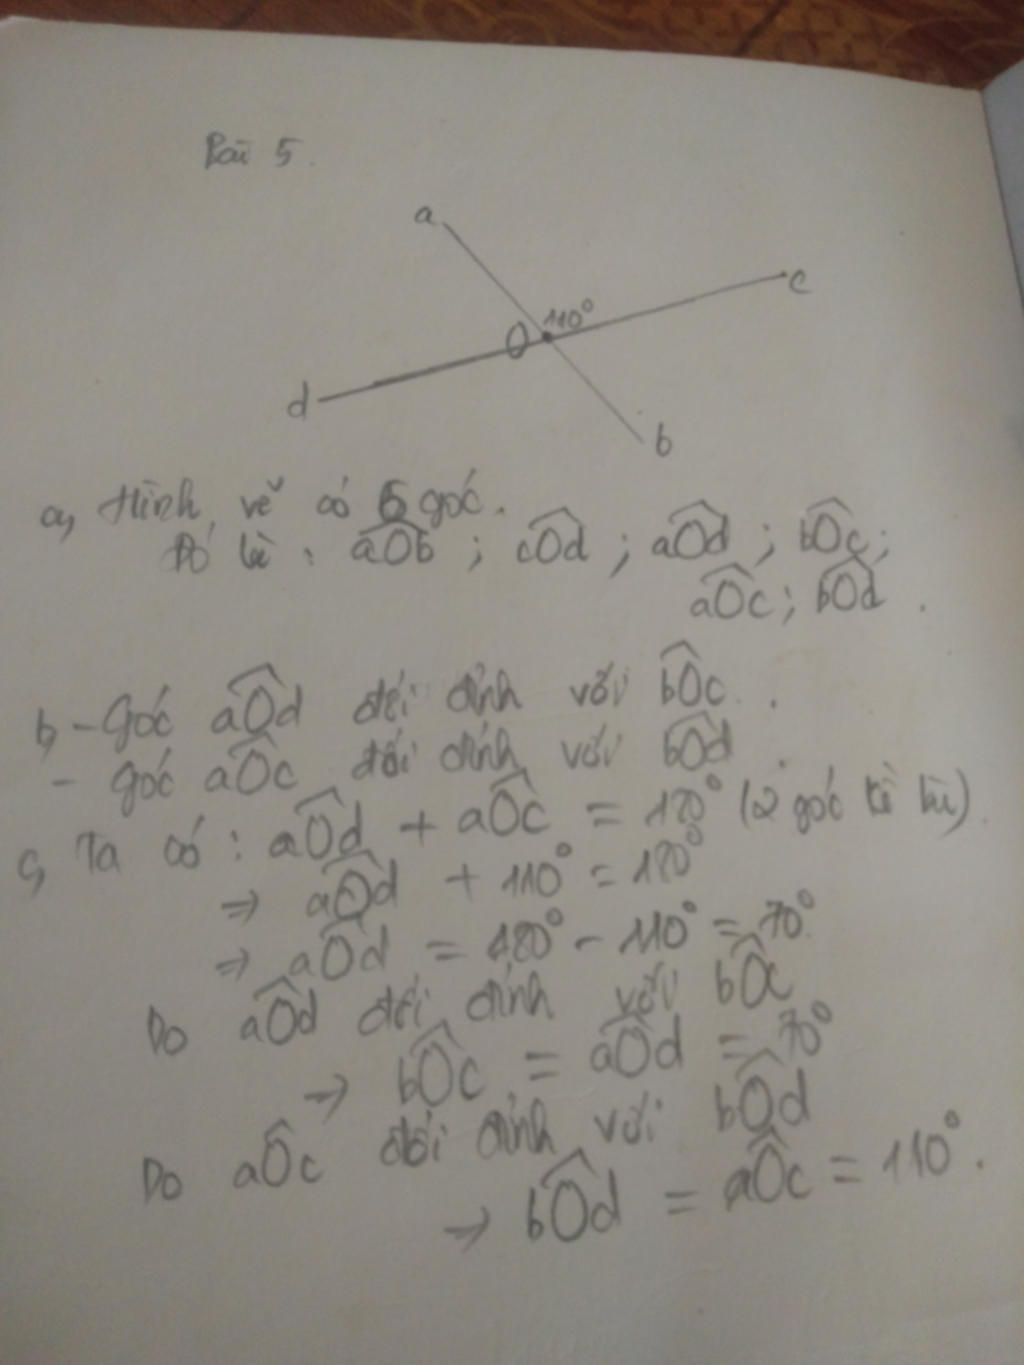 Bài 5.
a
c
110°
O
d
b
a, Hình vẽ có 6 góc.
Đó là : aOb ; cOd ; aOd ; bOc ;
aOc ; bOd .
b, - Góc aOd đối đỉnh với bOc .
- góc aOc đối đỉnh với bOd .
c, Ta có : aOd + aOc = 180° (2 góc kề bù).
⇒ aOd + 110° = 180°
⇒ aOd = 180° - 110° = 70°
Do aOd đối đỉnh với bOc
→ bOc = aOd = 70°
Do aOc đối đỉnh với bOd
→ bOd = aOc = 110° .